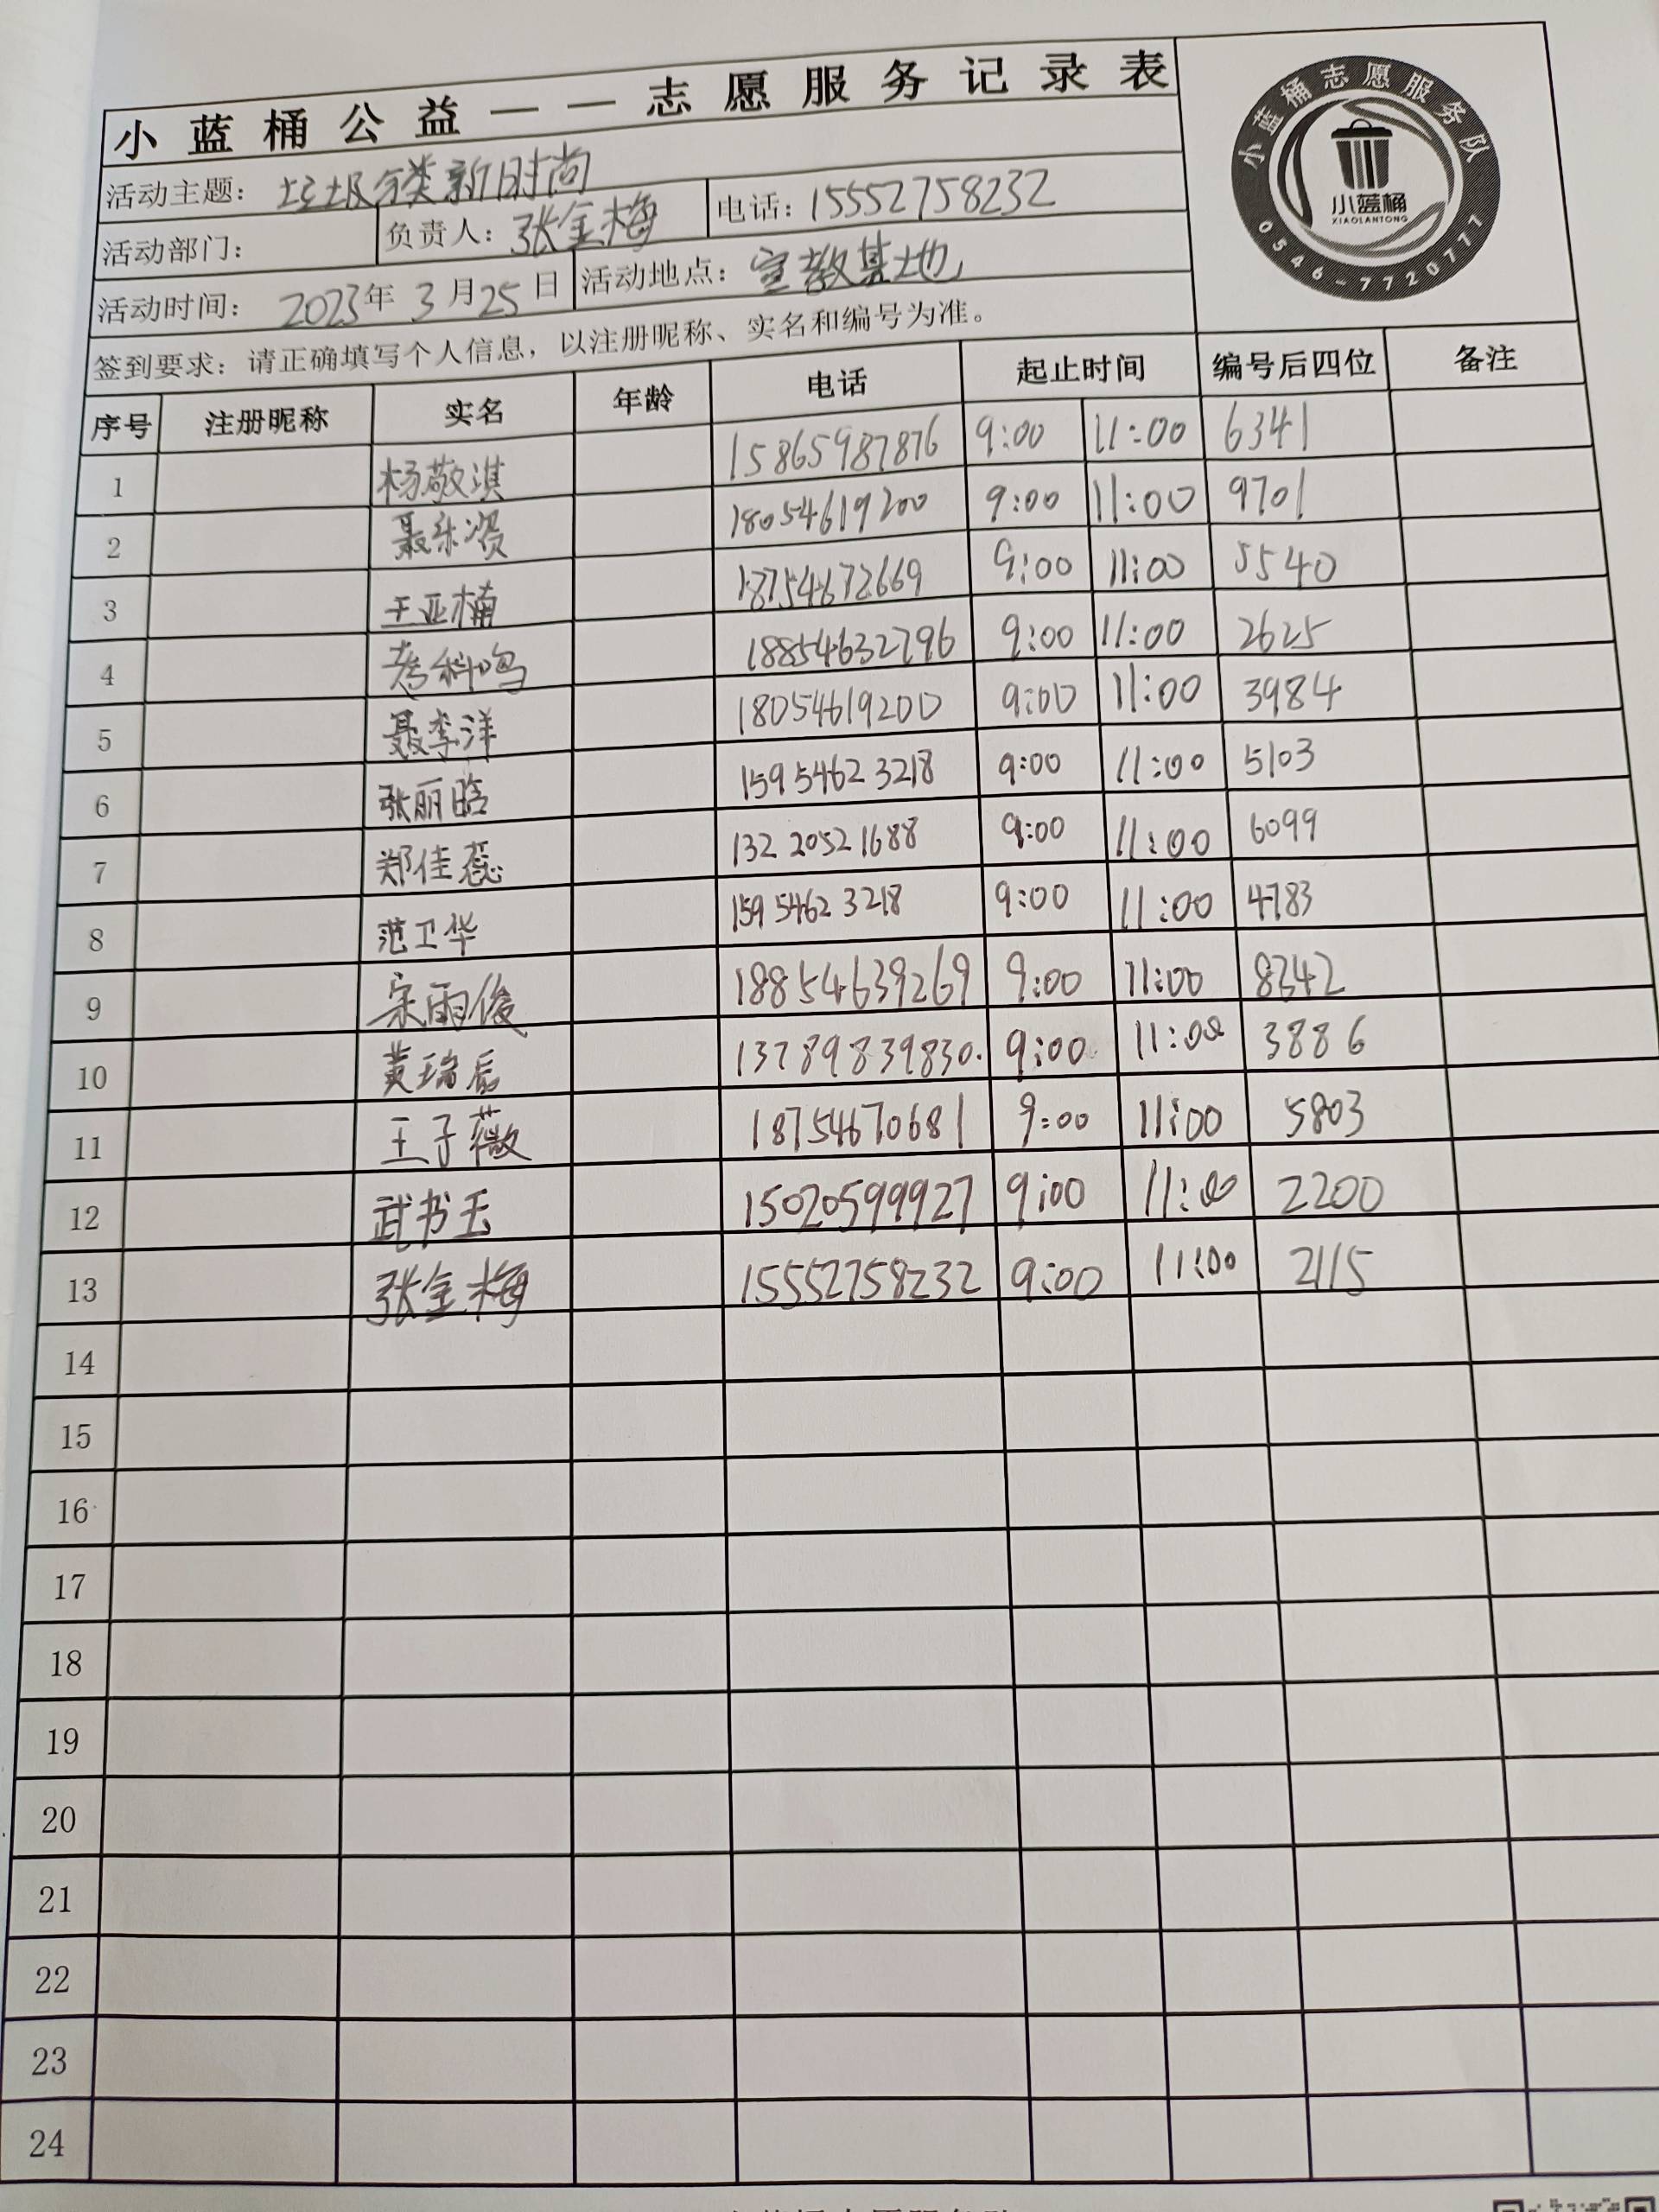 小蓝桶公益——志愿服务记录表
小蓝桶志愿服务队
小蓝桶
XIAOLANTONG
0546-7720777
活动主题： 垃圾分类新时尚
活动部门： 负责人：张金梅 电话：15552758232
活动时间： 2023年 3月25日 活动地点：宣教基地
签到要求：请正确填写个人信息，以注册昵称、实名和编号为准。
序号 注册昵称 实名 年龄 电话 起止时间 编号后四位 备注
1 杨敬淇 15865987876 9:00 11:00 6341
2 聂 18054619200 9:00 11:00 9701
3 王亚楠 18754672669 9:00 11:00 5540
4 科鸣 18854632796 9:00 11:00 2625
5 聂李洋 18054619200 9:00 11:00 3984
6 张丽晗 159 5462 3218 9:00 11:00 5103
7 郑佳蕊 132 2052 1688 9:00 11:00 6099
8 范卫华 159 5462 3218 9:00 11:00 4783
9 宋雨俊 18854639269 9:00 11:00 8342
10 黄瑞辰 13789839830. 9:00 11:00 3886
11 王子薇 18754670681 9:00 11:00 5803
12 武书玉 15020599927 9:00 11:00 2200
13 张金梅 15552758232 9:00 11:00 2115
14
15
16
17
18
19
20
21
22
23
24